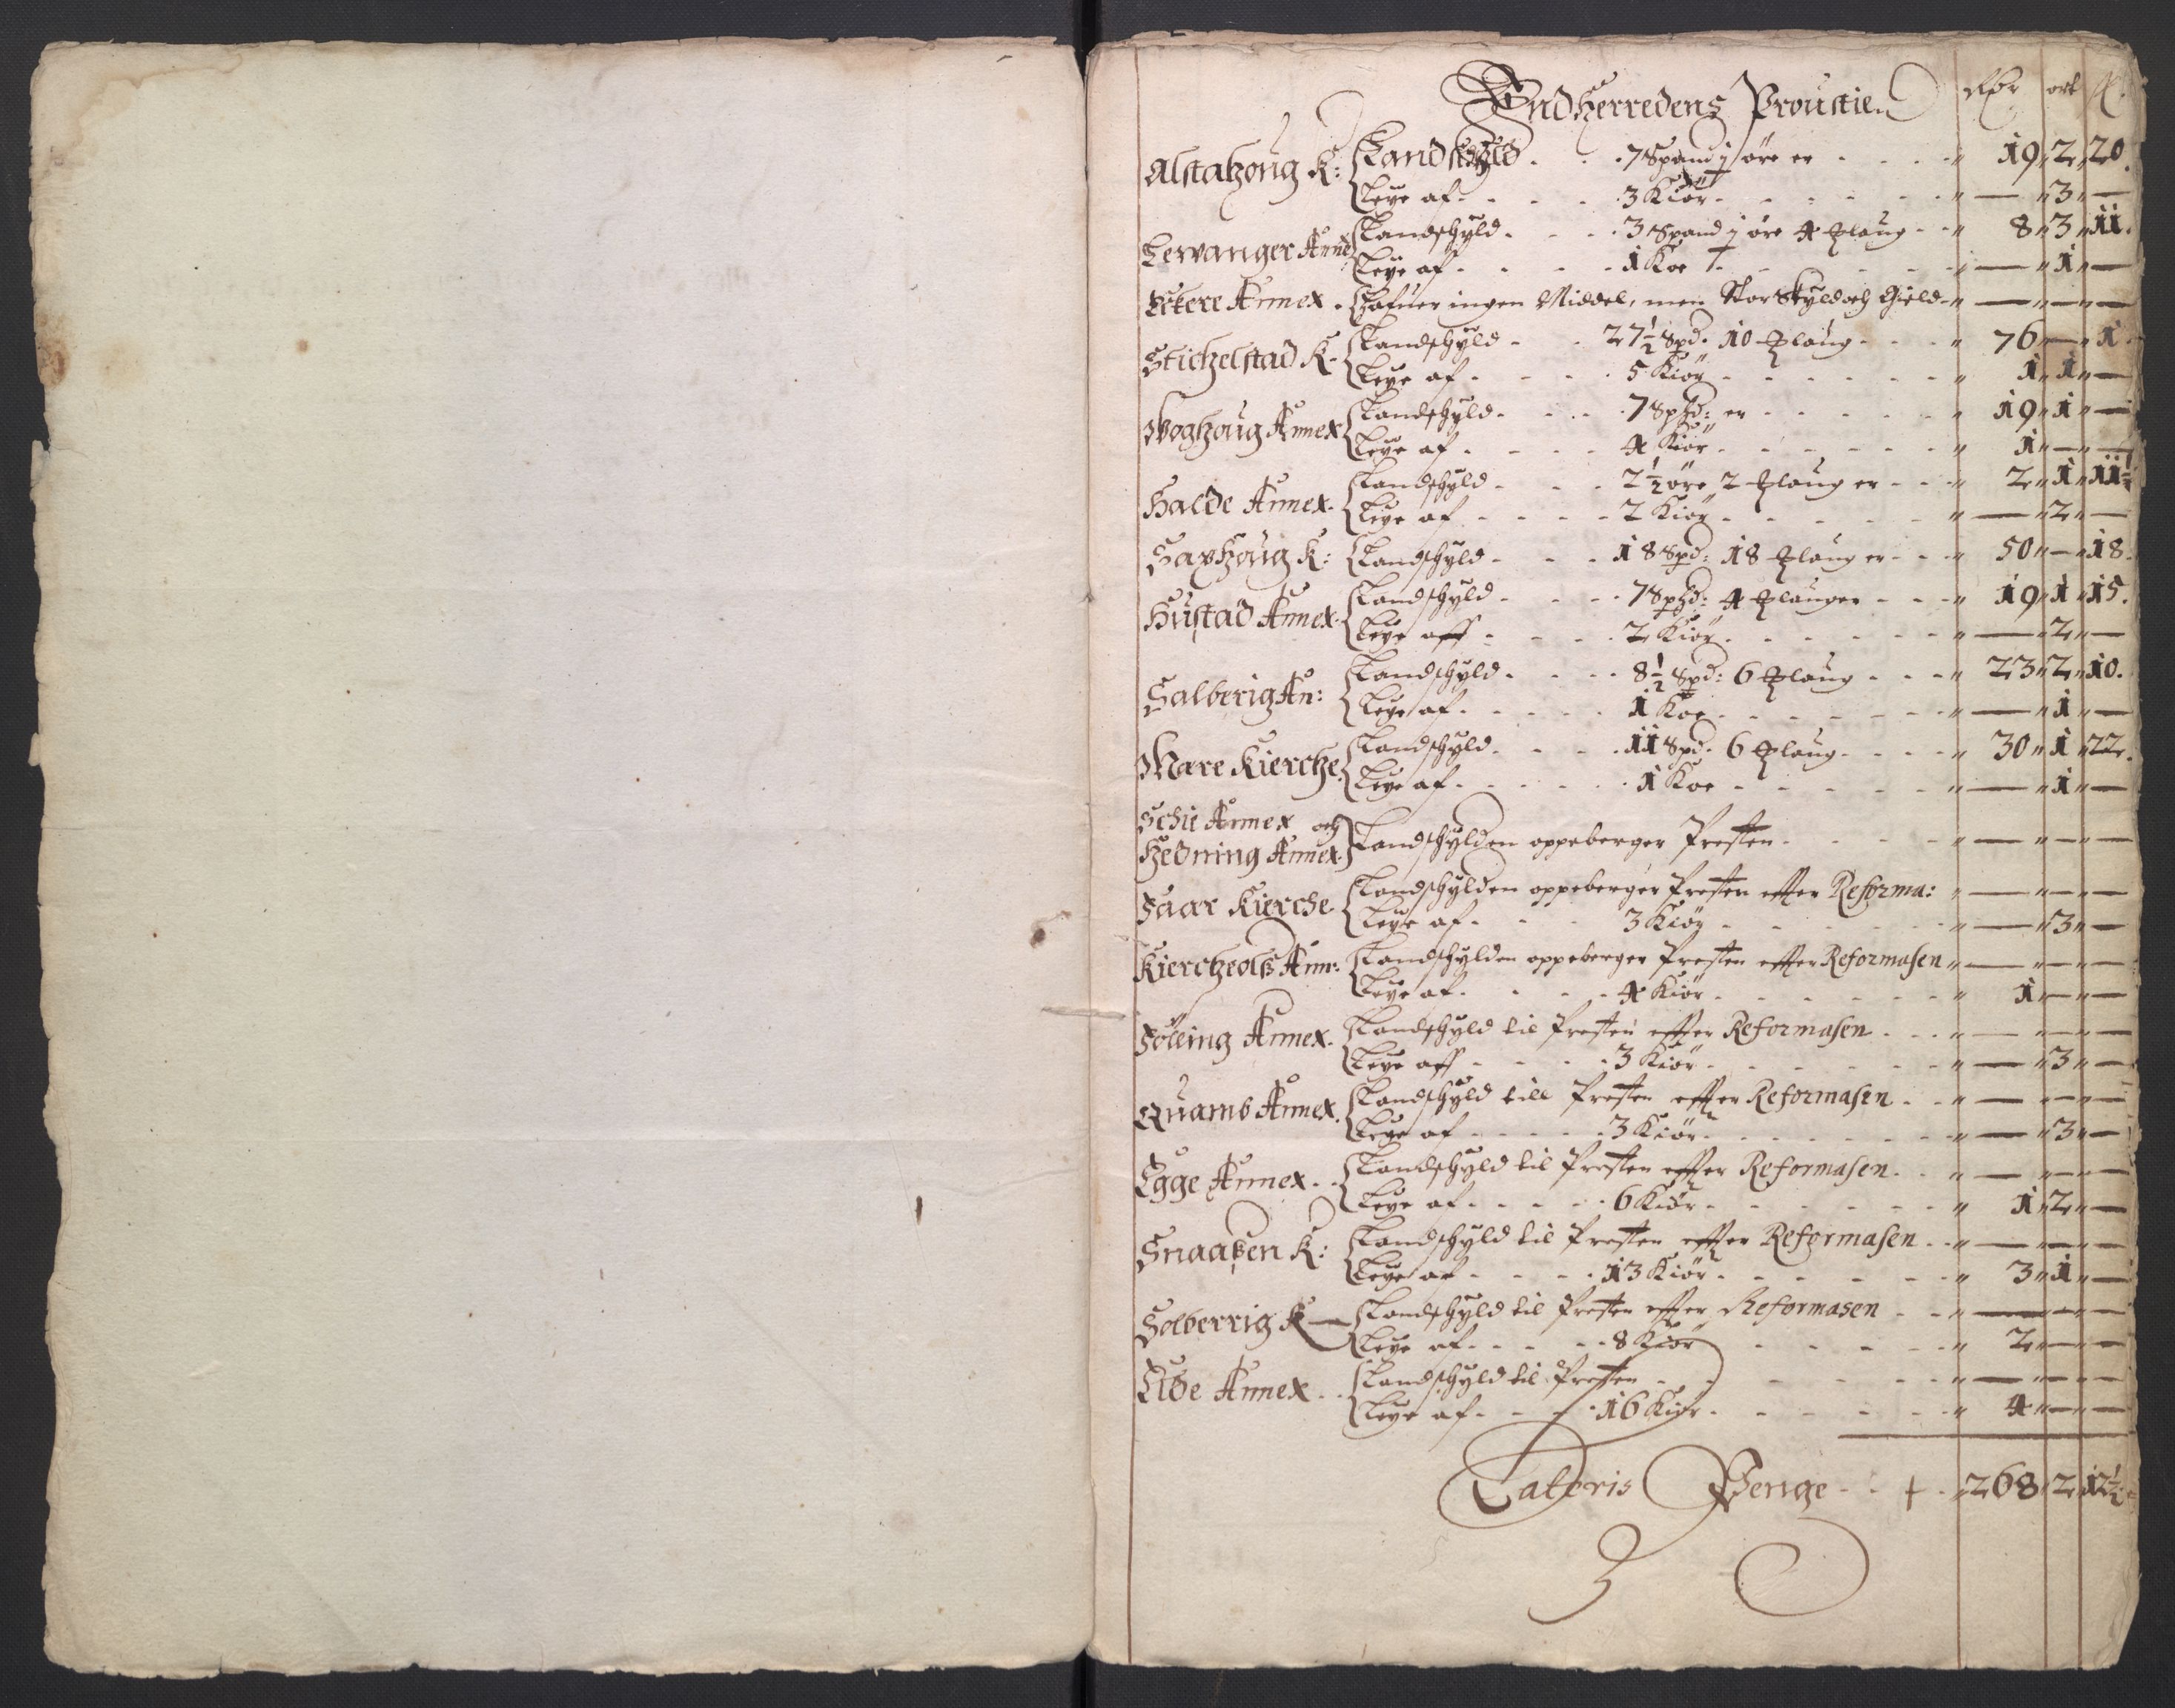 Indherredens Proustie Rdr ort ſk.
Alstahoug K: Landskyld . . 7 Spand j øre er . . . 19 " 2 " 20.
Leye af . . . 3 Kiør . . . — " 3 " —
Lewanger Anne: Landschyld . . . 3 Spand j øre 4 plaug . . 8 " 3 " 11.
Leye af . . . 1 Koe . . . — " 1 " —
Annex . hafuer ingen Middel, men Stor Skyld och Gield — " — " —
Stichelstad K. Landschyld . . 27½ Spd. 10 plaug . . . 76 " — " 1.
Leye af . . . 5 Kiør . . . 1 " 1 " —
Woghoug Annex Landschyld . . . 7 Sphd: er . . . 19 " 1 " —
Leye af . . . 4 Kiør . . . 1 " — " —
Halde Annex. Landschyld . . . 2½ øre 2 plaug er . . 2 " 1 " 11½
Leye af . . . 2 Kiør . . . — " 2 " —
Saxhoug K: Landschyld . . . 18 Spd: 18 plaug er . . 50 " — " 18.
Hustad Annex. Landschyld . . . 7 Sphd: 4 plauger . . . 19 " 1 " 15.
Leye aff . . . 2 Kiør . . . — " 2 " —
Salberig An: Landschyld . . . 8½ Spd: 6 plaug . . . 23 " 2 " 10.
Leye af . . . 1 Koe . . . — " 1 " —
Mare Kierche. Landschyld . . . 11 Spd. 6 plaug . . . 30 " 1 " 22.
Leye af . . . 1 Koe . . . — " 1 " —
Schie Annex och
Hedning Annex. Landschylden oppeberger Presten . . . — " — " —
Faar Kierche Landschylden oppeberger Presten effter Reforma: — " — " —
Leye af . . . 3 Kiør . . . — " 3 " —
Kiercheols Ann: Landschylden oppeberger Presten effter Reformasen — " — " —
Leye af . . . 4 Kiør . . . 1 " — " —
Fölling Annex. Landschyld til Presten effter Reformasen . . . — " — " —
Leye aff . . . 3 Kiør . . . — " 3 " —
Quamb Annex. Landschyld till Presten effter Reformasen . . — " — " —
Leye af . . . 3 Kiør . . . — " 3 " —
Egge Annex . . Landschyld til Presten effter Reformasen . . — " — " —
Leye af . . . 6 Kiør . . . 1 " 2 " —
Snaaßen K: Landschyld til Presten effter Reformasen . . — " — " —
Leye af . . . 13 Kiør . . . 3 " 1 " —
Solberrig K — Landschyld til Presten effter Reformasen . . — " — " —
Leye af . . . 8 Kiør . . . 2 " — " —
Annex . . Landschyld til Presten . . . — " — " —
Leye af . . . 16 Kiør . . . 4 " — " —
Lateris Penge . . + . 268 " 2 " 12½